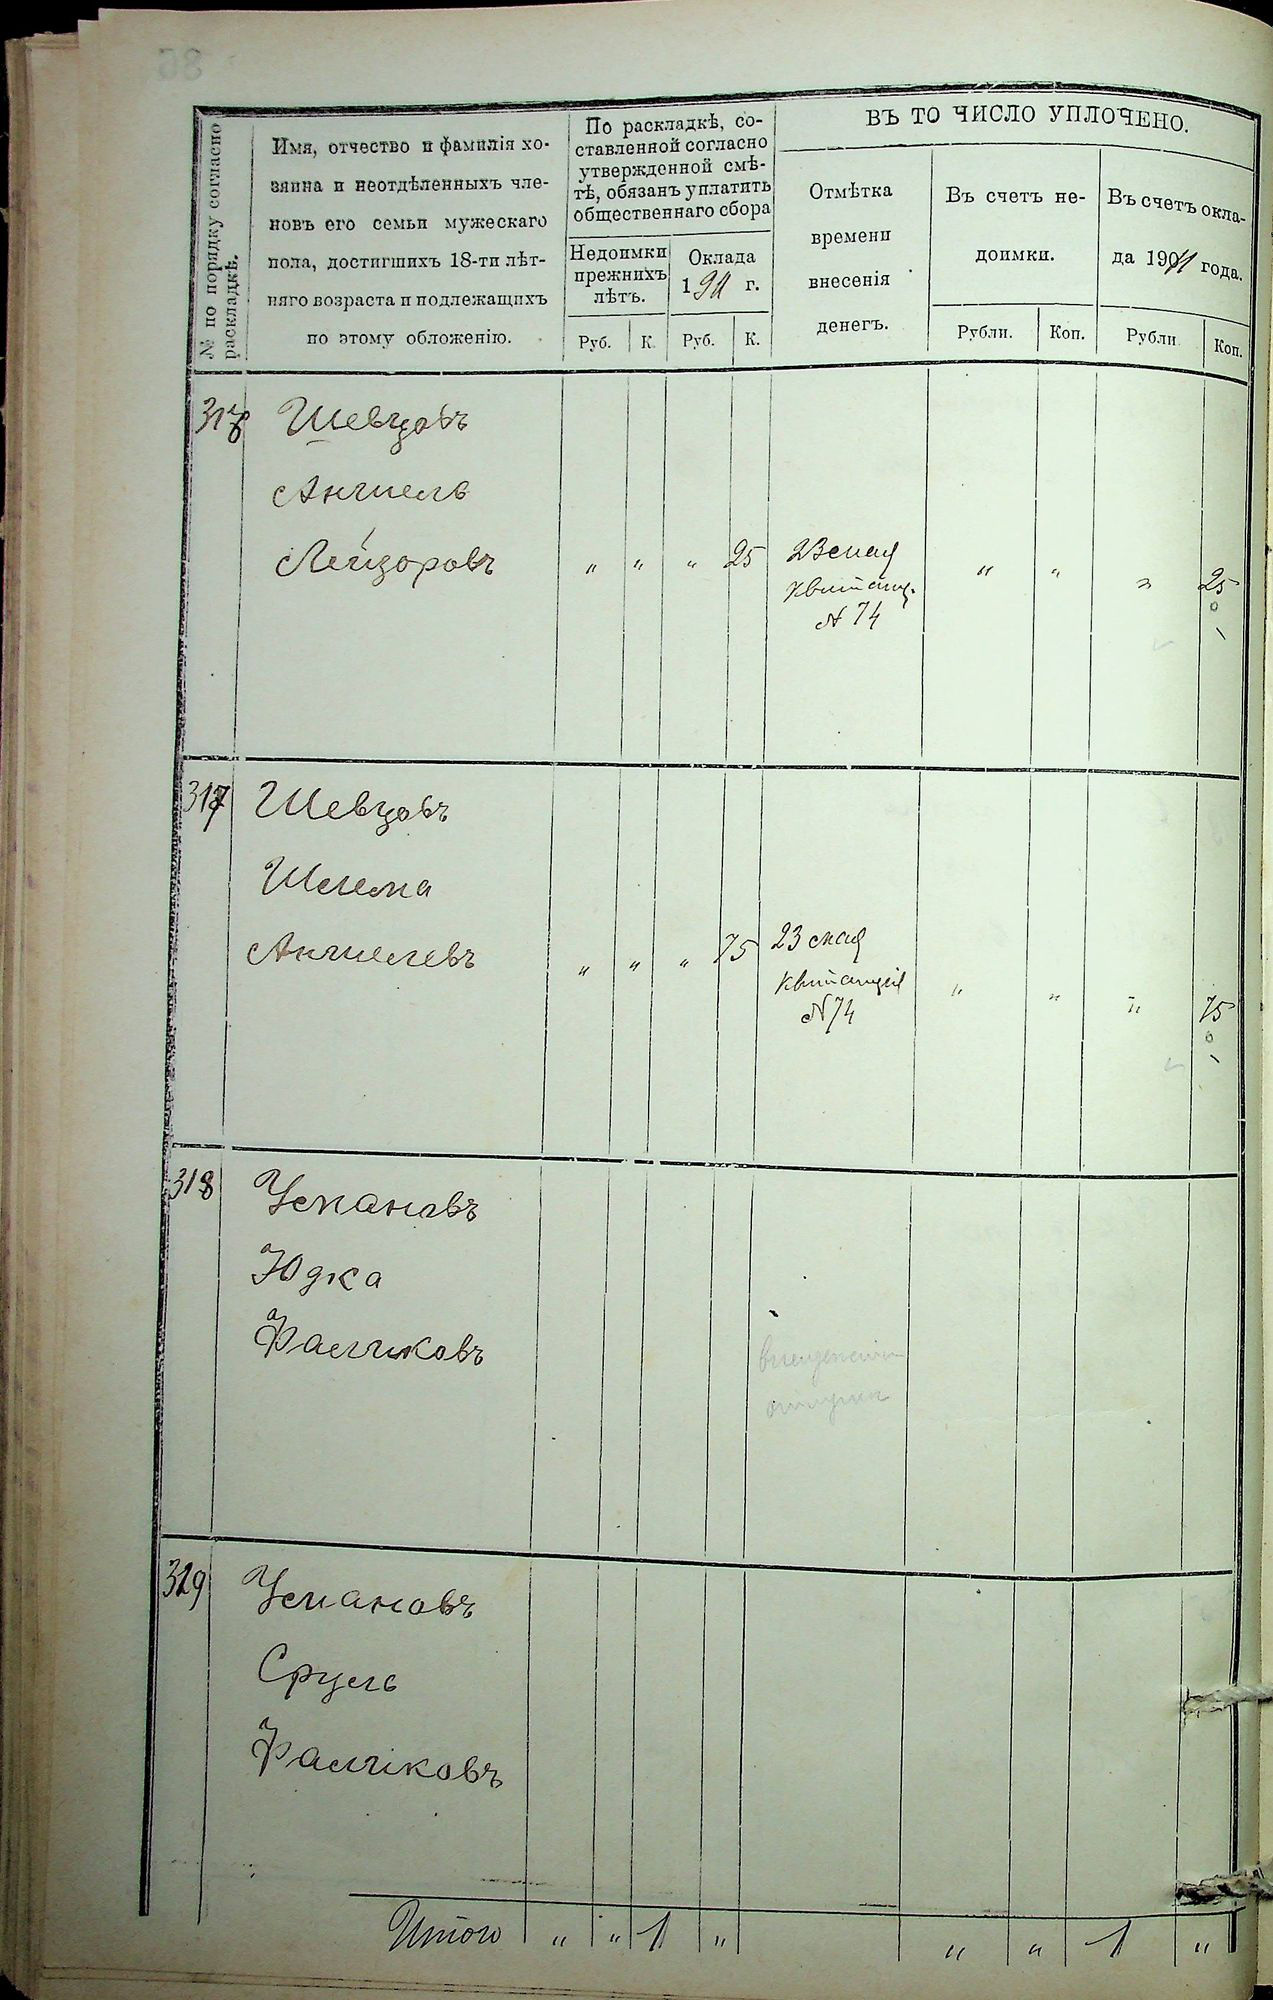 № по порядку согласно
раскладкѣ.
Имя, отчество и фамилія хо-
зяина и неотдѣленныхъ чле-
новъ его семьи мужескаго
пола, достигшихъ 18-ти лѣт-
няго возраста и подлежащихъ
по этому обложенію.
По раскладкѣ, со-
ставленной согласно
утвержденной смѣ-
тѣ, обязанъ уплатить
общественнаго сбора
Недоимки
прежнихъ
лѣтъ.
Оклада
1911 г.
Руб. К. Руб. К.
ВЪ ТО ЧИСЛО УПЛОЧЕНО.
Отмѣтка
времени
внесенія
денегъ.
Въ счетъ не-
доимки.
Въ счетъ окла-
да 1911 года.
Рубли. Коп. Рубли Коп.
316 Шевцовъ
Анчель
Лейзоровъ „ „ „ 25 23 мая „ „ „ 25
квитанц.
№ 74
317 Шевцовъ
Шлема
Анчелевъ „ „ „ 75 23 мая „ „ „ 75
квитанция
№ 74
318 Усмановъ
Юдка
Фалчиковъ
319 Усмановъ
Сруль
Фалчиковъ
Итого „ „ 1 „ „ „ 1 „